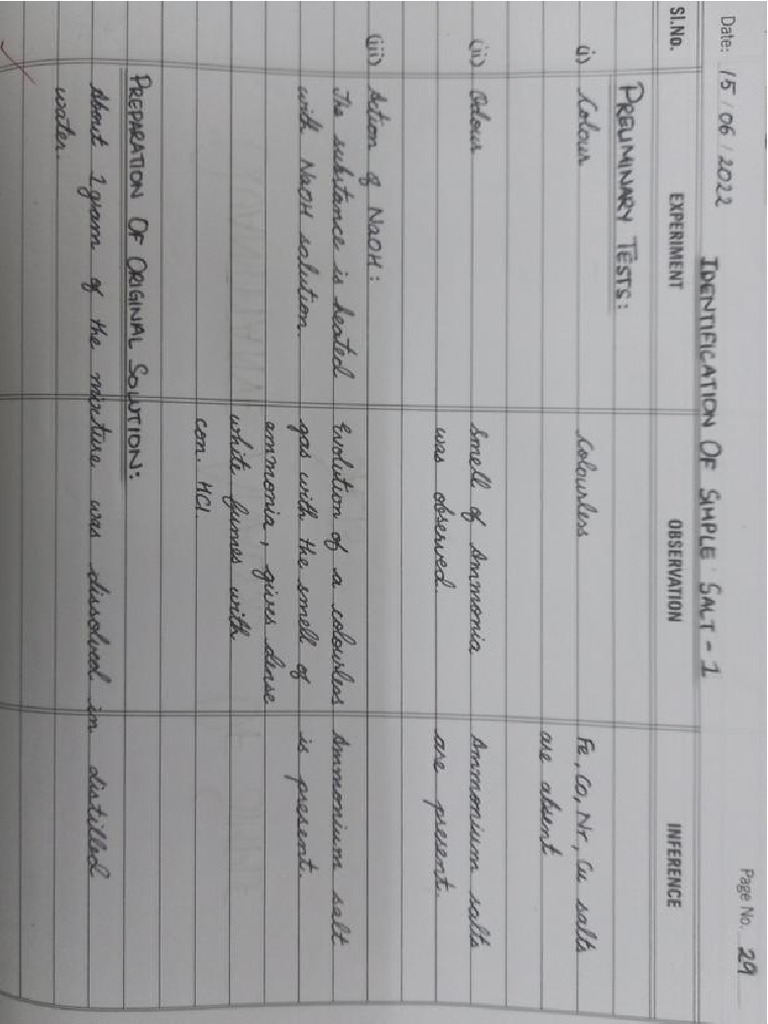 Date: 15/06/2022
Page No. 29
IDENTIFICATION OF SIMPLE SALT - 1
Sl.No. EXPERIMENT OBSERVATION INFERENCE
PRELIMINARY TESTS:
(i) Colour Colourless Fe, Co, Ni, Cu salts
are absent
(ii) Odour Smell of Ammonia Ammonium salts
was observed are present.
(iii) Action of NaOH:
The substance is heated Evolution of a colourless Ammonium salt
with NaOH solution. gas with the smell of is present.
ammonia, gives dense
white fumes with
con. HCl.
PREPARATION OF ORIGINAL SOLUTION:
About 1 gram of the mixture was dissolved in distilled
water.